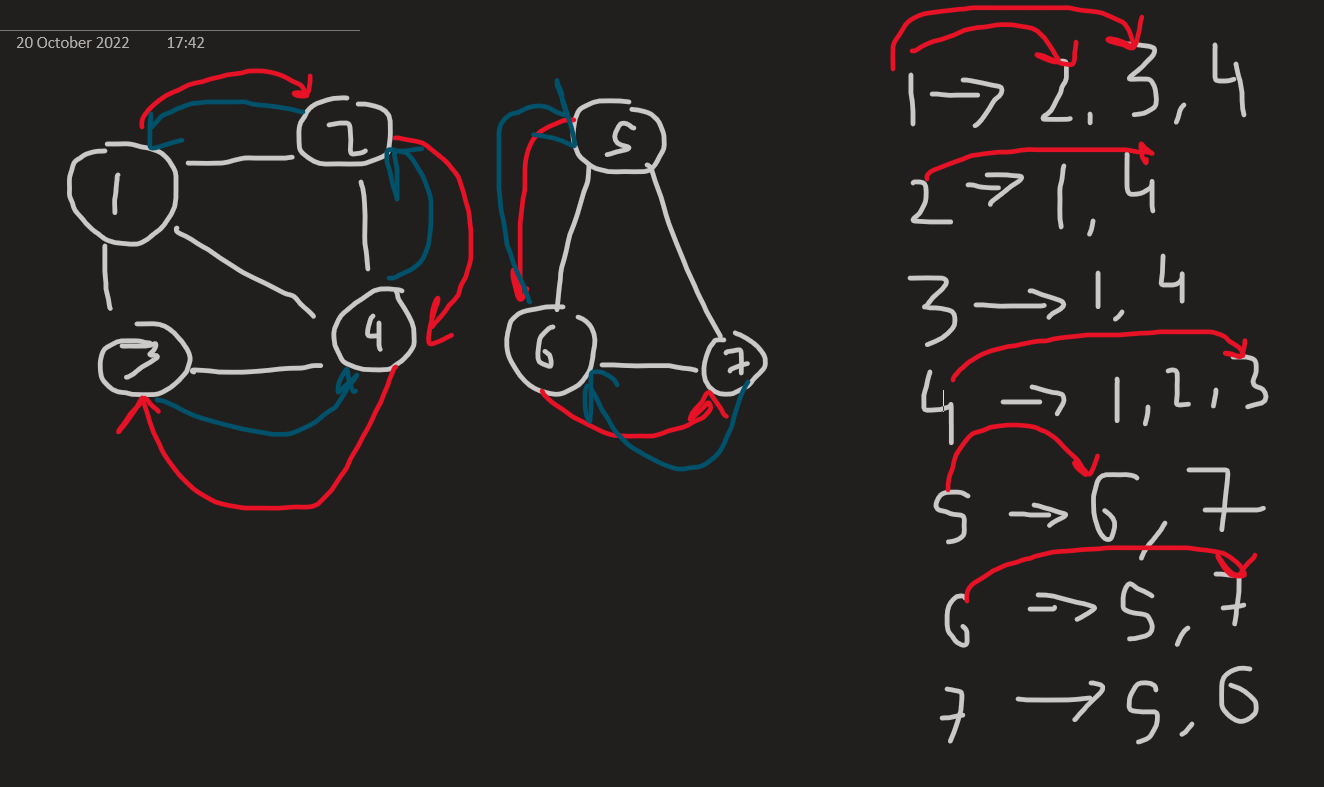 20 October 2022 17:42
1
2
3
4
5
6
7
1 → 2, 3, 4
2 → 1, 4
3 → 1, 4
4 → 1, 2, 3
5 → 6, 7
6 → 5, 7
7 → 5, 6